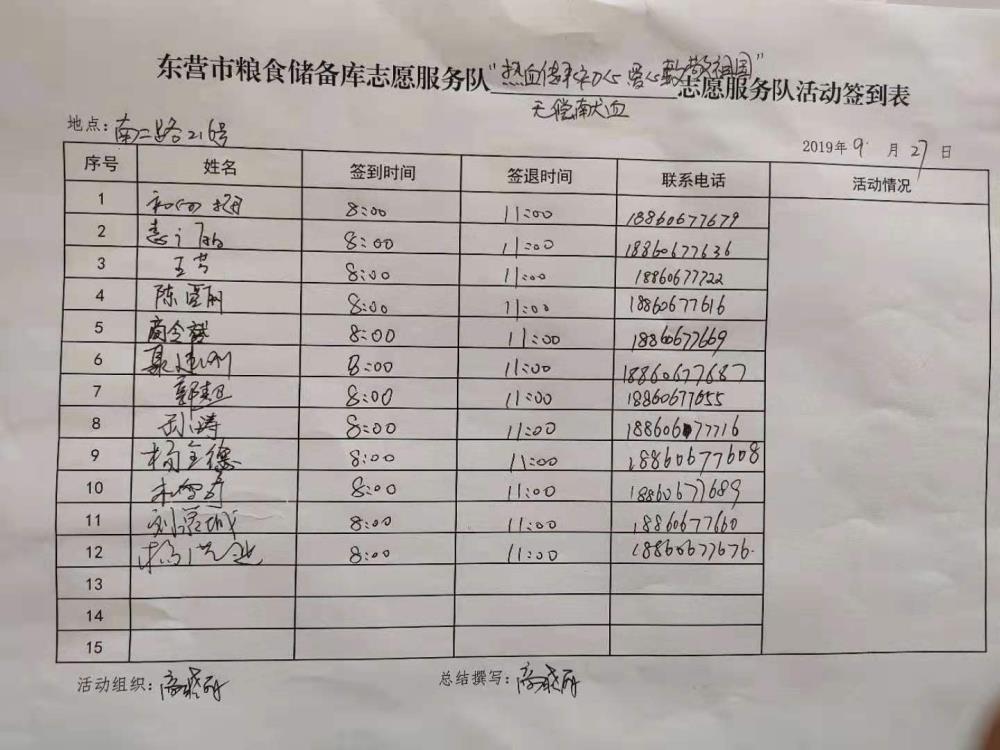 东营市粮食储备库志愿服务队"热血传承初心 爱心致敬祖国"志愿服务队活动签到表
无偿献血
地点：南二路216号
2019年9月27日
序号 姓名 签到时间 签退时间 联系电话 活动情况
1 8:00 11:00 18860677679
2 8:00 11:00 18860677636
3 王芳 8:00 11:00 18860677722
4 陈 8:00 11:00 18860677616
5 商 8:00 11:00 18860677669
6 8:00 11:00 18860677687
7 郭 8:00 11:00 18860677655
8 涛 8:00 11:00 18860677716
9 杨金德 8:00 11:00 18860677608
10 8:00 11:00 18860677689
11 刘 城 8:00 11:00 18860677660
12 杨 8:00 11:00 18860677676
13
14
15
活动组织： 总结撰写：